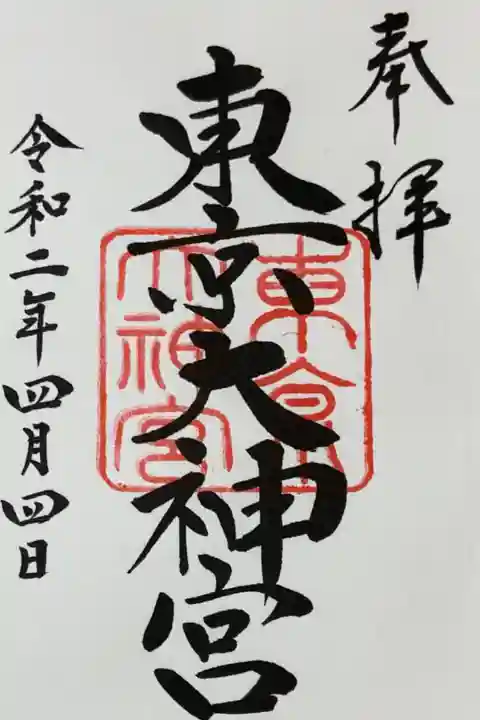 奉拝
東京大神宮
東京大神宮
令和二年四月四日